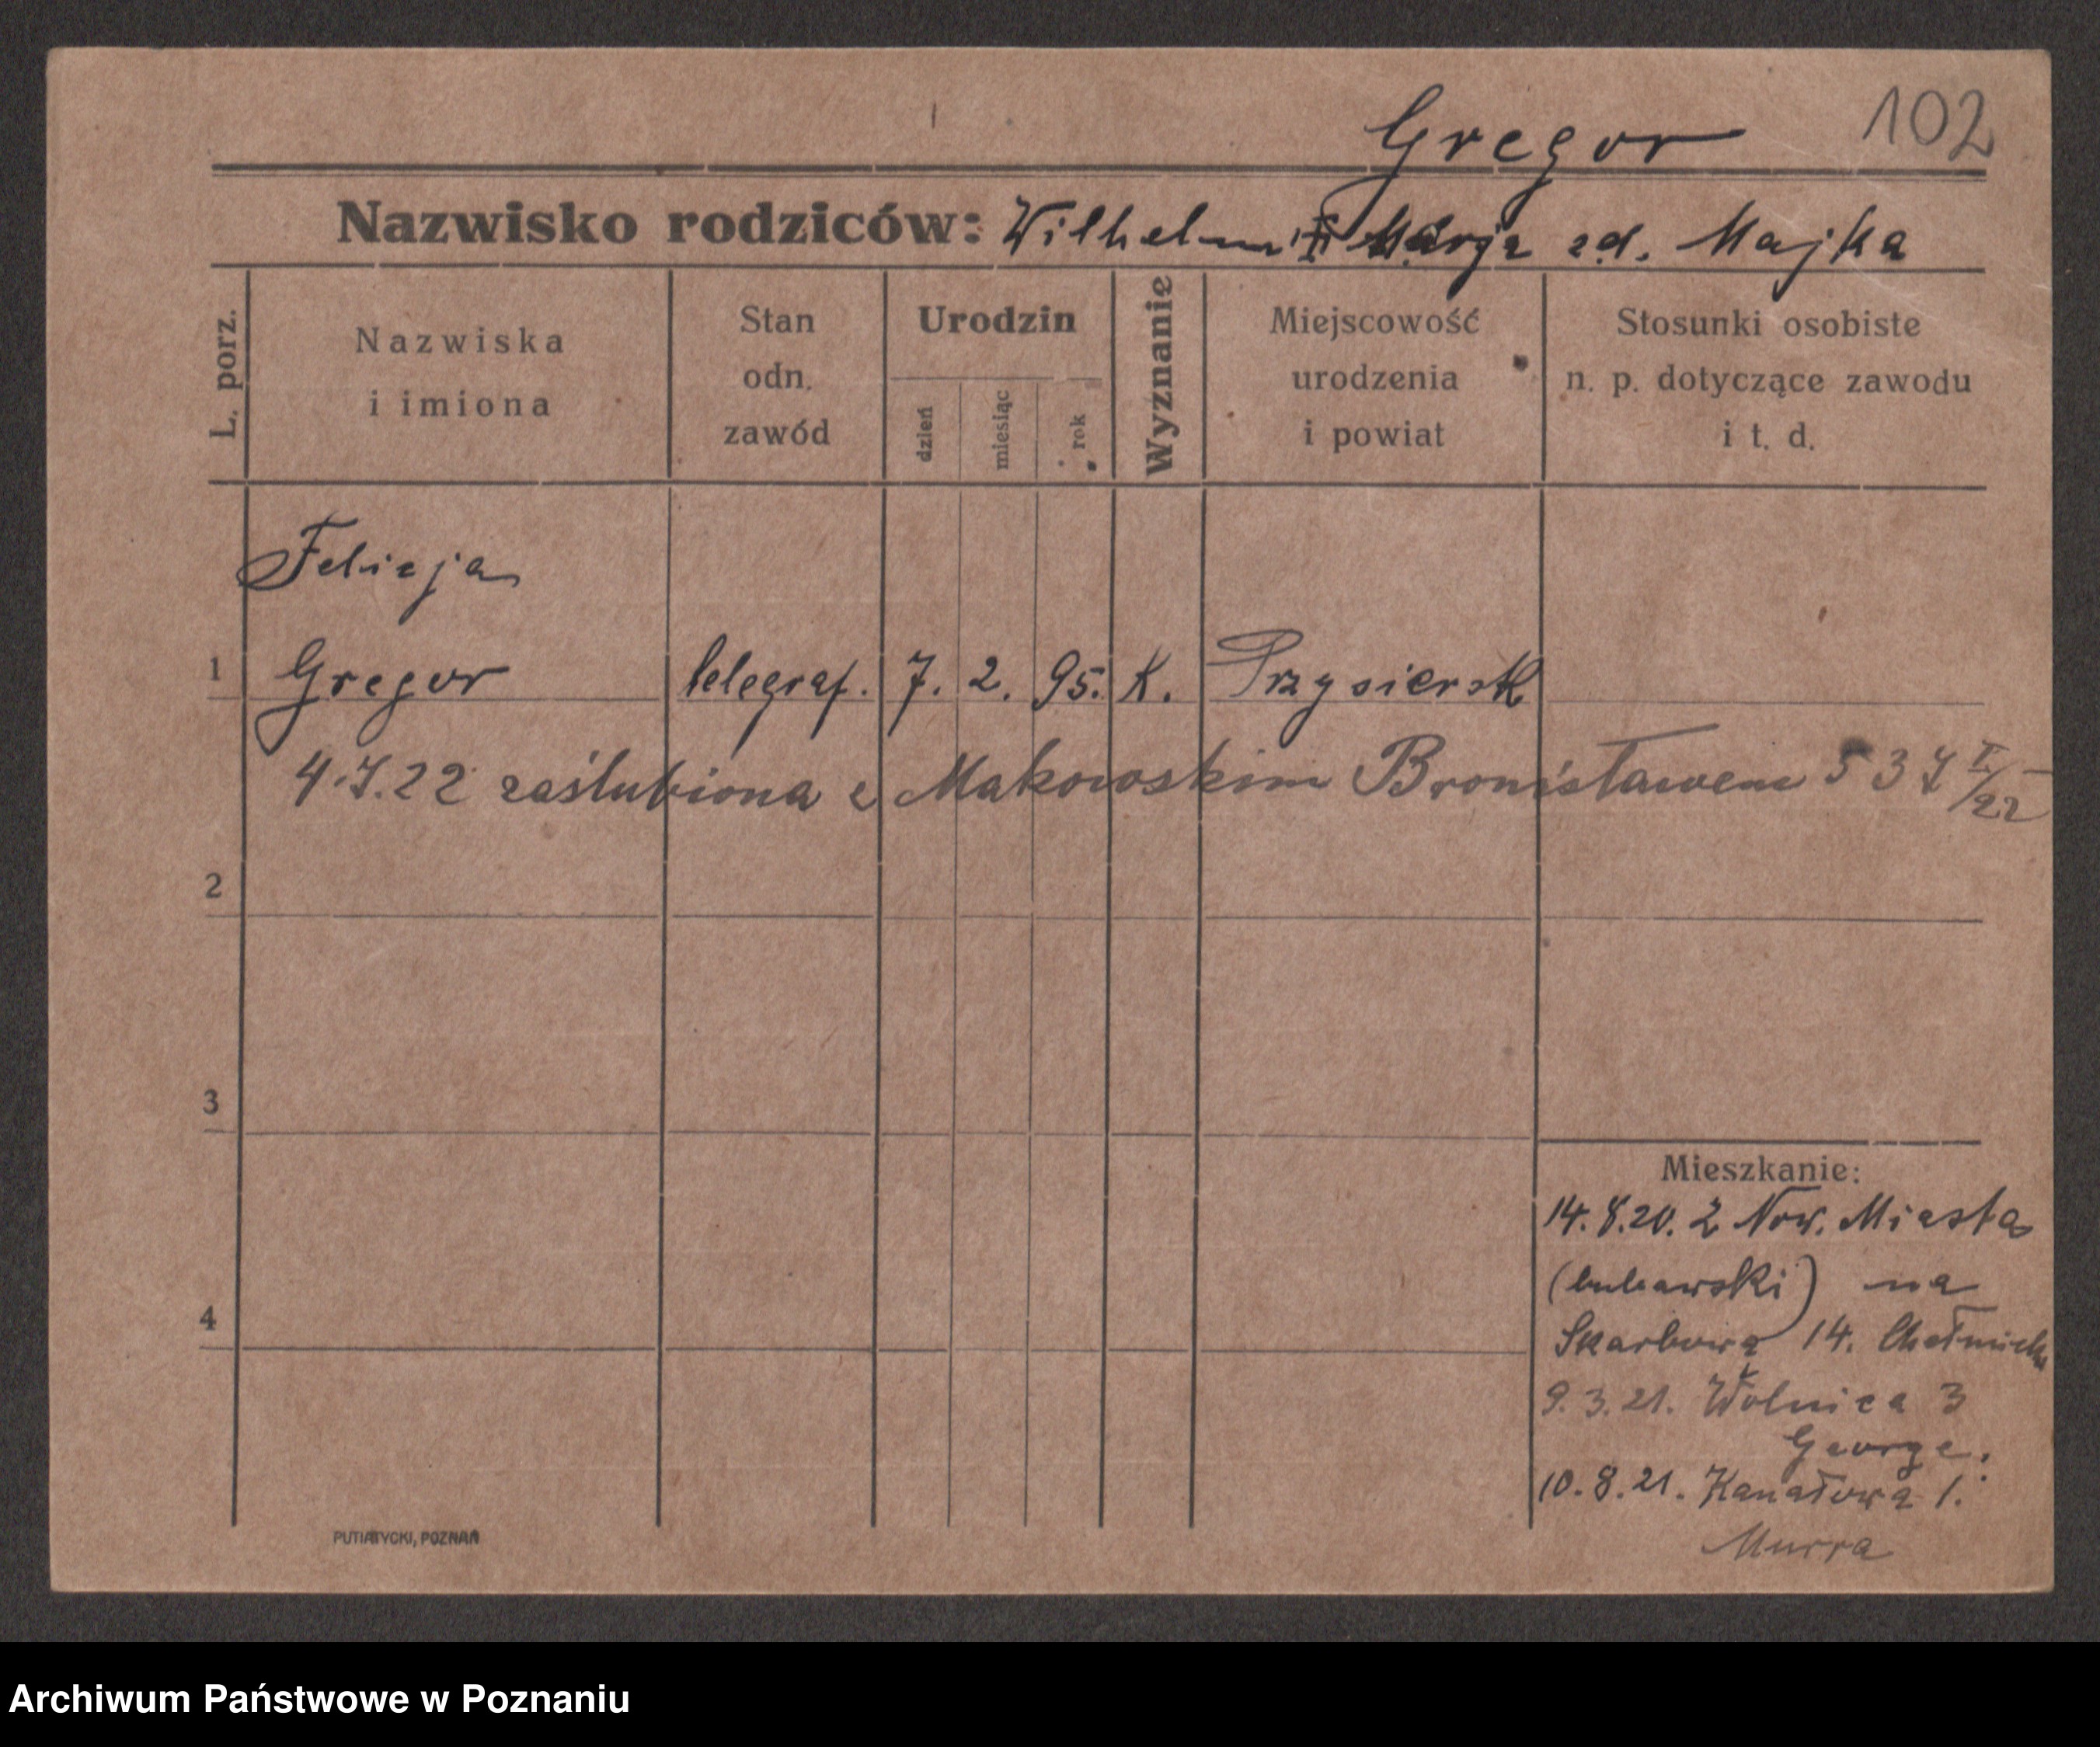 Gregor 102
Nazwisko rodziców: Wilhelm i Marja zd. Majka
L. porz.
Nazwiska
i imiona
Stan
odn.
zawód
Urodzin
dzień
miesiąc
rok
Wyznanie
Miejscowość
urodzenia
i powiat
Stosunki osobiste
n. p. dotyczące zawodu
i t. d.
Felicja
1 Gregor telegraf. 7. 2. 95. K. Przysiersk
4.7.22 zaślubiona z Makowskim Bronisławem 537 I/22
2
3
4
Mieszkanie:
14.8.20. z Now. Miasta
(lubawski) na
Skarbową 14.
9.3.21. Wolnica 3
George.
10.8.21. Kanałowa 1.
Murra
PUTIATYCKI, POZNAŃ
Archiwum Państwowe w Poznaniu